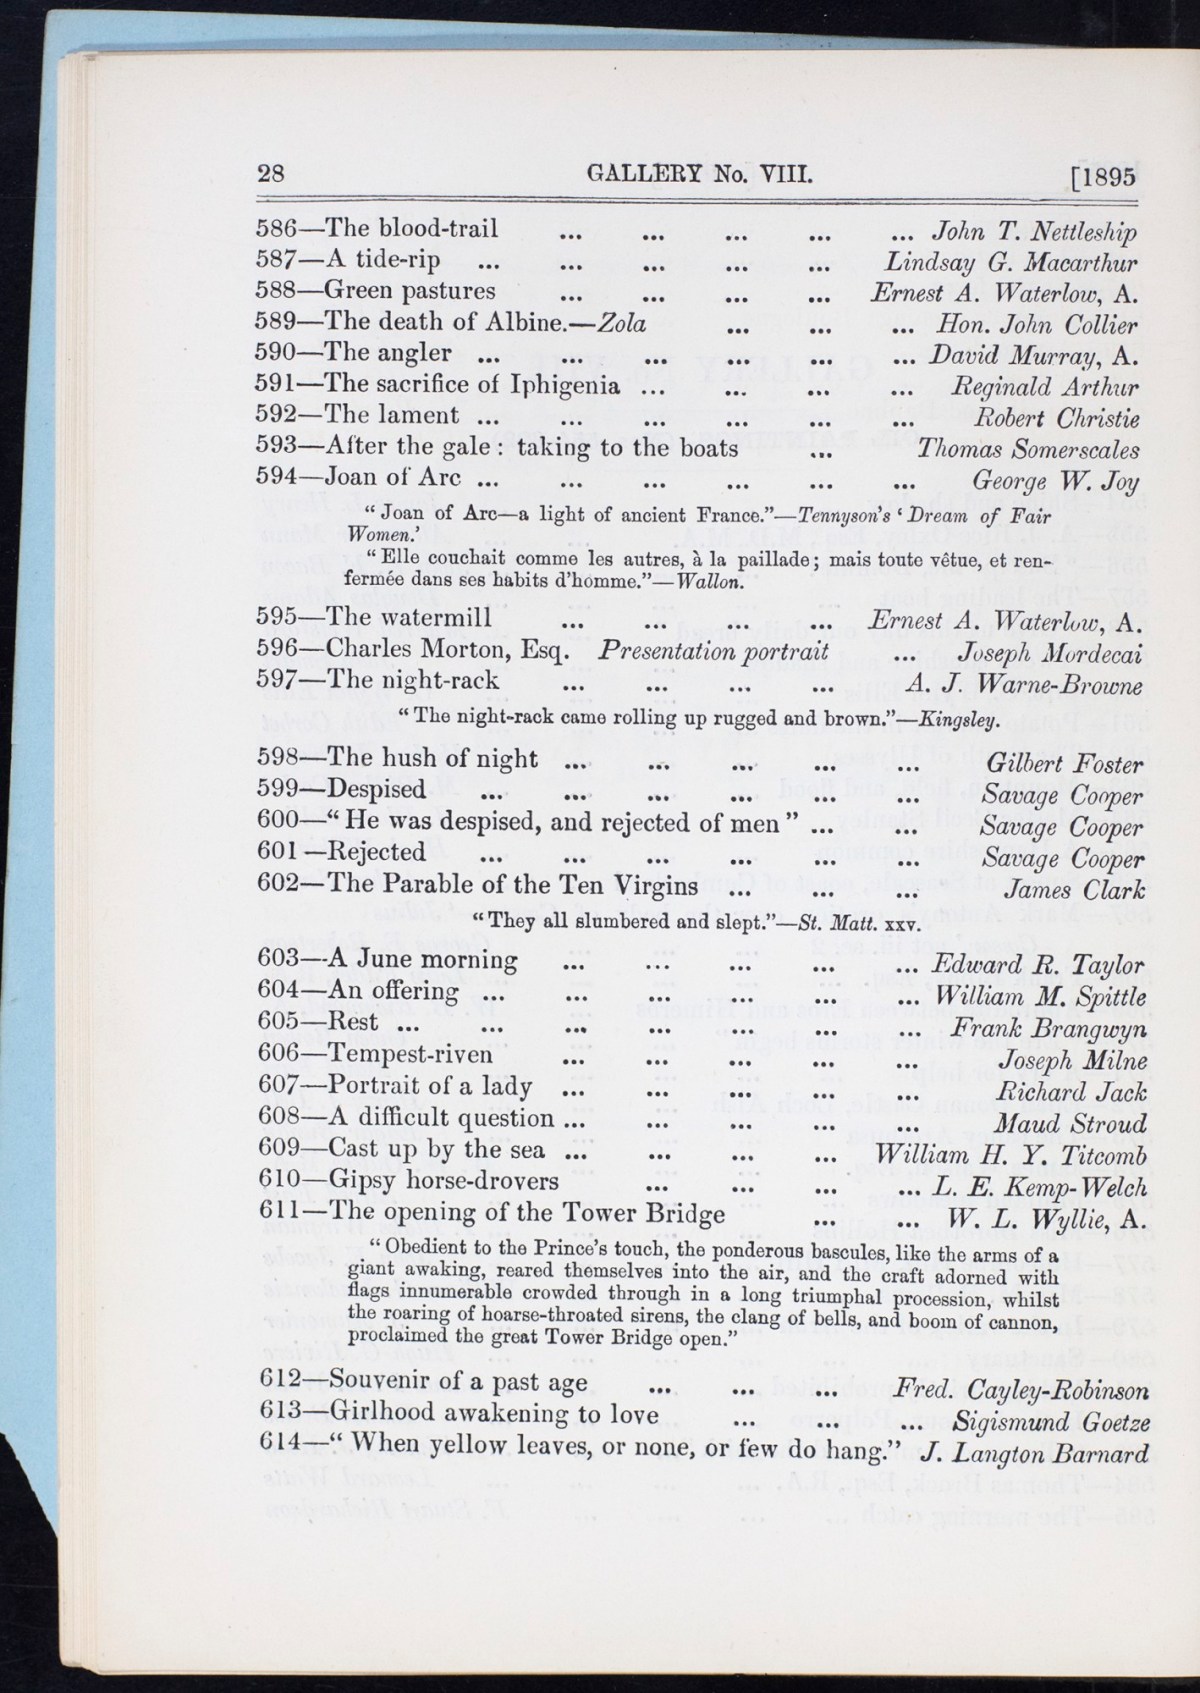 28 GALLERY No. VIII. [1895
586—The blood-trail ... ... ... ... ... John T. Nettleship
587—A tide-rip ... ... ... ... ... Lindsay G. Macarthur
588—Green pastures ... ... ... ... Ernest A. Waterlow, A.
589—The death of Albine.—Zola ... ... ... Hon. John Collier
590—The angler ... ... ... ... ... ... David Murray, A.
591—The sacrifice of Iphigenia ... ... ... ... Reginald Arthur
592—The lament ... ... ... ... ... ... Robert Christie
593—After the gale : taking to the boats ... Thomas Somerscales
594—Joan of Arc ... ... ... ... ... ... George W. Joy
“ Joan of Arc—a light of ancient France.”—Tennyson's ‘ Dream of Fair
Women.’
“ Elle couchait comme les autres, à la paillade ; mais toute vêtue, et ren-
fermée dans ses habits d'homme.”—Wallon.
595—The watermill ... ... ... ... Ernest A. Waterlow, A.
596—Charles Morton, Esq. Presentation portrait ... Joseph Mordecai
597—The night-rack ... ... ... ... A. J. Warne-Browne
“ The night-rack came rolling up rugged and brown.”—Kingsley.
598—The hush of night ... ... ... ... ... Gilbert Foster
599—Despised ... ... ... ... ... ... Savage Cooper
600—“ He was despised, and rejected of men ” ... ... Savage Cooper
601—Rejected ... ... ... ... ... ... Savage Cooper
602—The Parable of the Ten Virgins ... ... ... James Clark
“ They all slumbered and slept.”—St. Matt. xxv.
603—A June morning ... ... ... ... ... Edward R. Taylor
604—An offering ... ... ... ... ... ... William M. Spittle
605—Rest ... ... ... ... ... ... ... Frank Brangwyn
606—Tempest-riven ... ... ... ... ... Joseph Milne
607—Portrait of a lady ... ... ... ... ... Richard Jack
608—A difficult question ... ... ... ... ... Maud Stroud
609—Cast up by the sea ... ... ... ... William H. Y. Titcomb
610—Gipsy horse-drovers ... ... ... ... L. E. Kemp-Welch
611—The opening of the Tower Bridge ... ... W. L. Wyllie, A.
“ Obedient to the Prince's touch, the ponderous bascules, like the arms of a
giant awaking, reared themselves into the air, and the craft adorned with
flags innumerable crowded through in a long triumphal procession, whilst
the roaring of hoarse-throated sirens, the clang of bells, and boom of cannon,
proclaimed the great Tower Bridge open.”
612—Souvenir of a past age ... ... ... Fred. Cayley-Robinson
613—Girlhood awakening to love ... ... ... Sigismund Goetze
614—“ When yellow leaves, or none, or few do hang.” J. Langton Barnard